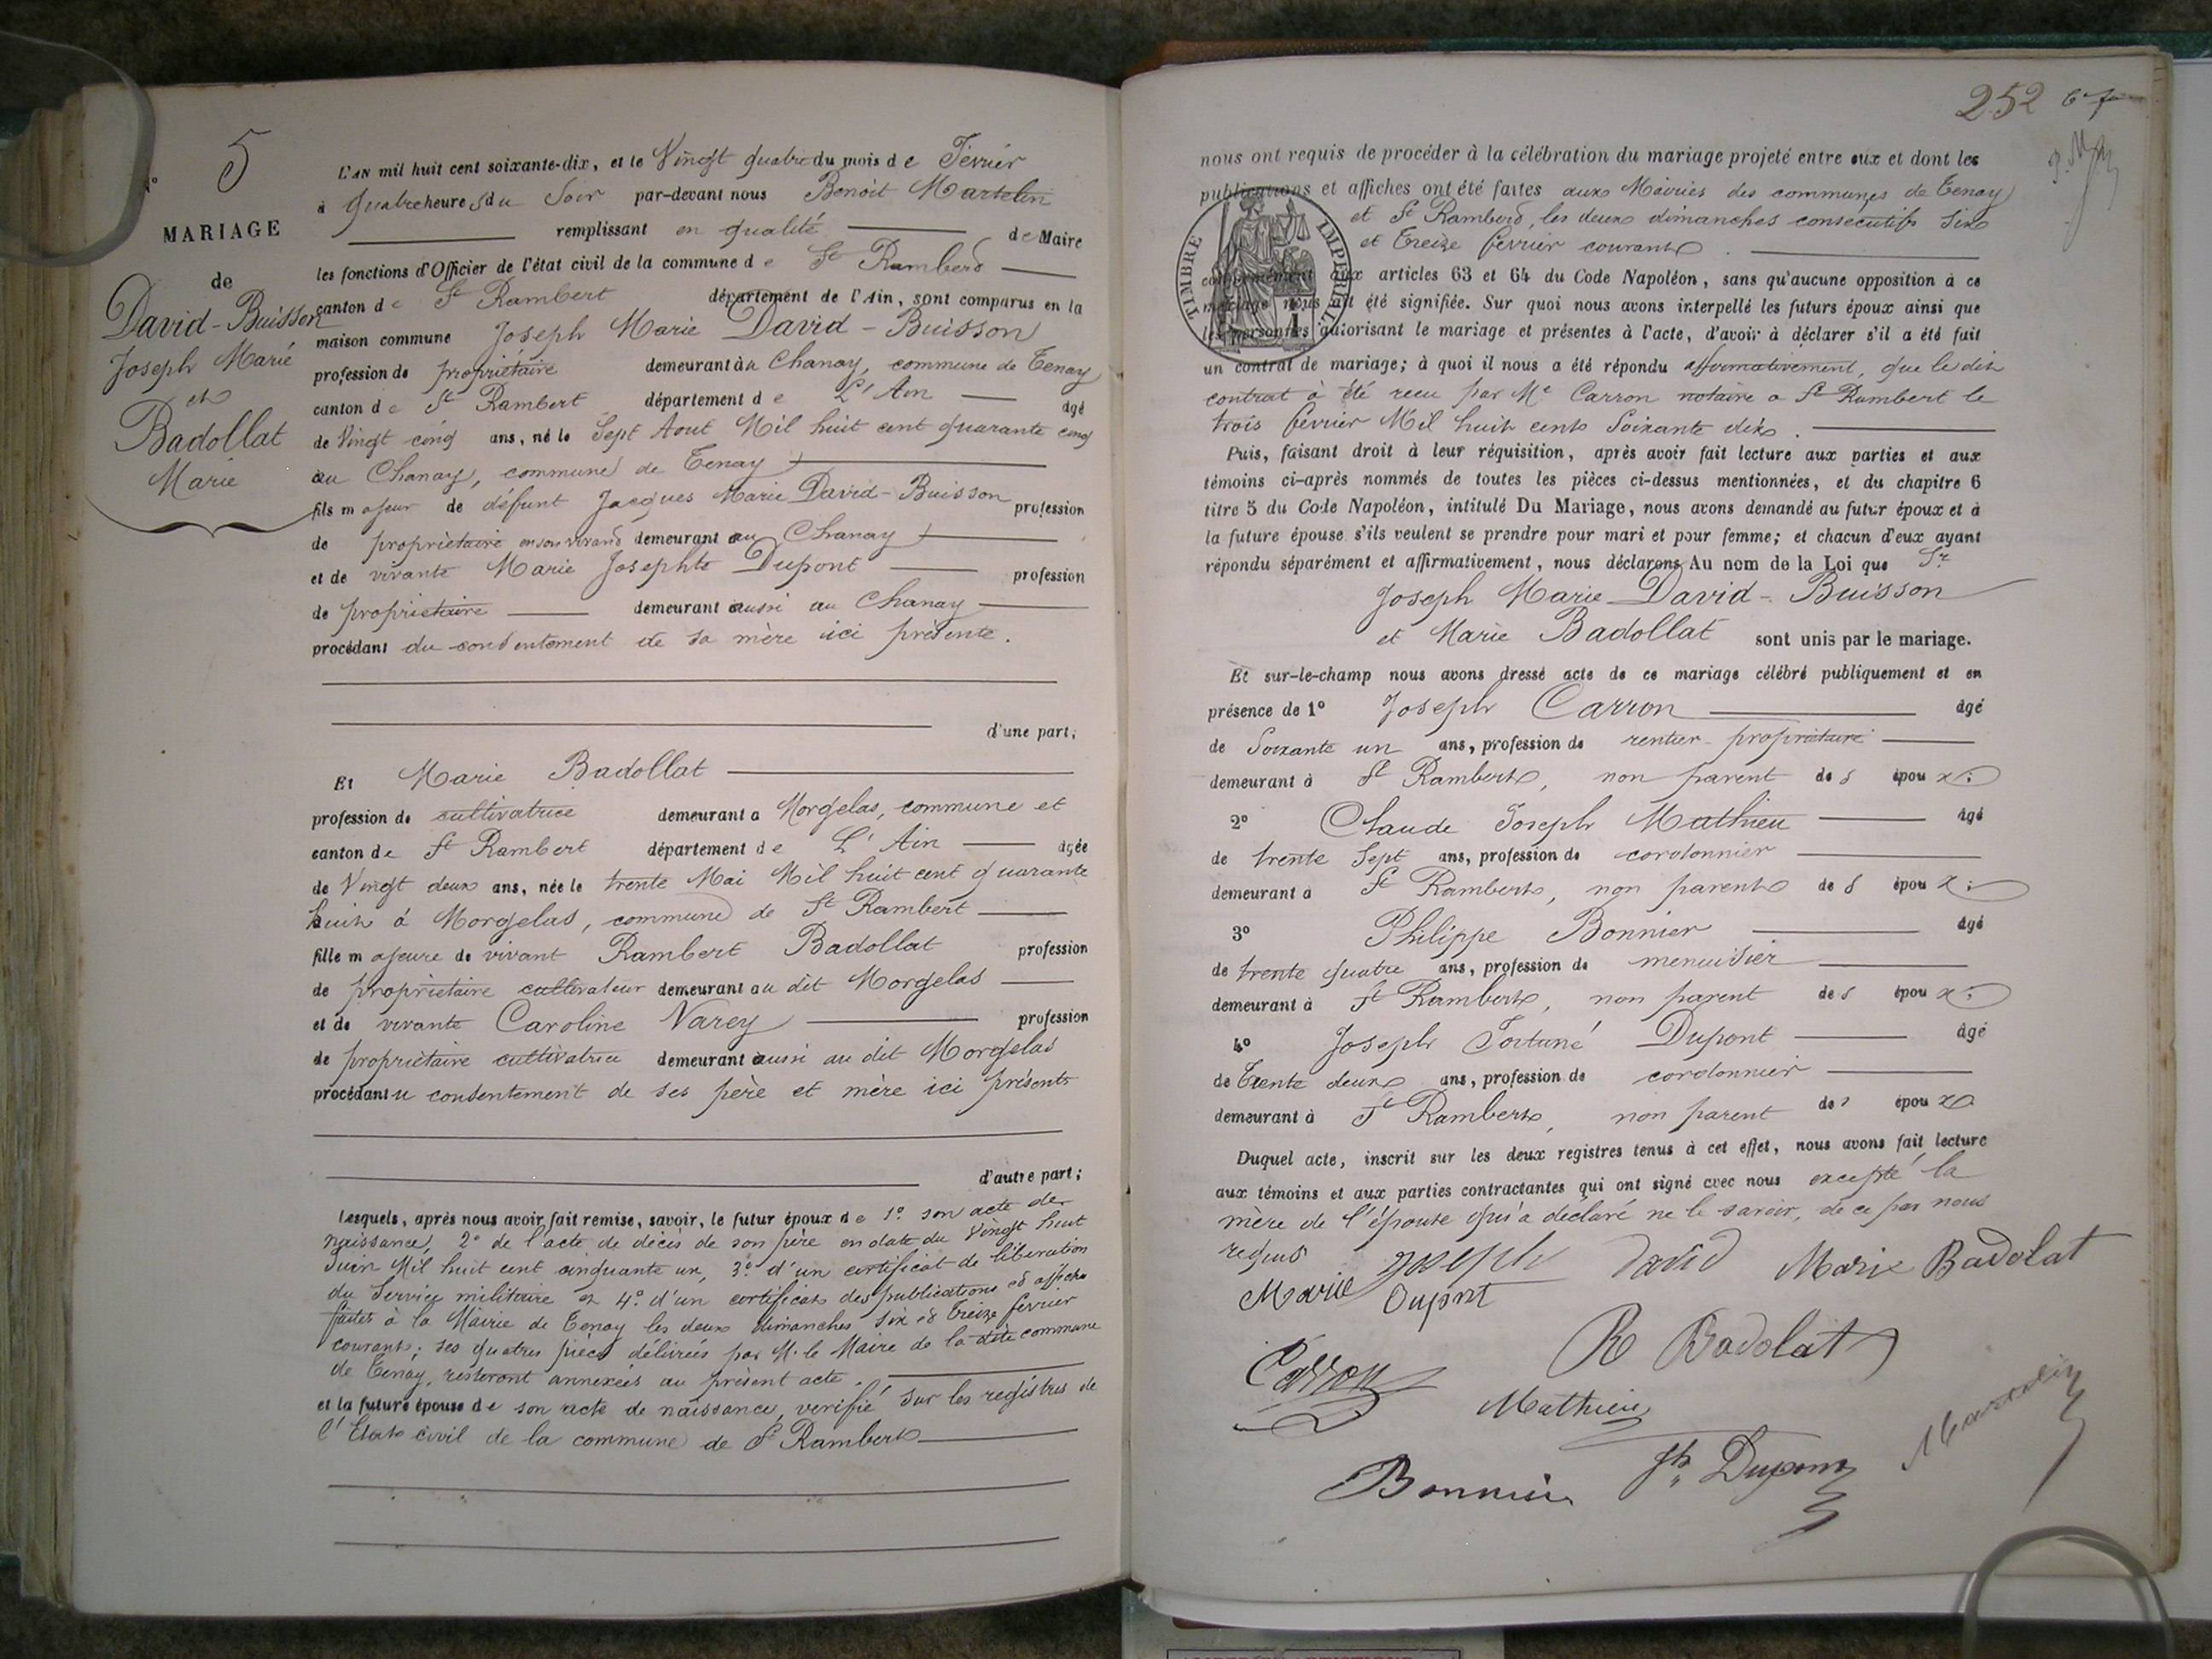 N° 5
MARIAGE
de
David-Buisson
Joseph Marie
et
Badollat
Marie
L'AN mil huit cent soixante-dix, et le Vingt quatre du mois de Février
à quatre heures du Soir par-devant nous Benoit Martelin
remplissant en qualité de Maire
les fonctions d'Officier de l'état civil de la commune de St Rambert
canton de St Rambert département de l'Ain, sont comparus en la
maison commune Joseph Marie David-Buisson
profession de propriétaire demeurant au Chanay, commune de Tenay
canton de St Rambert département de L'Ain âgé
de Vingt cinq ans, né le Sept Aout Mil huit cent quarante cinq
au Chanay, commune de Tenay
fils majeur de défunt Jacques Marie David-Buisson profession
de propriétaire en son vivant demeurant au Chanay
et de vivante Marie Josephte Dupont profession
de propriétaire demeurant aussi au Chanay
procédant du consentement de sa mère ici présente.
d'une part;
Et Marie Badollat
profession de cultivatrice demeurant a Morgelas, commune et
canton de St Rambert département de L'Ain âgée
de Vingt deux ans, née le trente Mai Mil huit cent quarante
huit à Morgelas, commune de St Rambert
fille majeure de vivant Rambert Badollat profession
de propriétaire cultivateur demeurant au dit Morgelas
et de vivante Caroline Narey profession
de propriétaire cultivatrice demeurant aussi au dit Morgelas
procédant u consentement de ses père et mère ici présents
d'autre part;
Lesquels, après nous avoir fait remise, savoir, le futur époux de 1° son acte de
naissance, 2° de l'acte de décès de son père en date du Vingt huit
Juin Mil huit cent cinquante un, 3° d'un certificat de libération
du Service militaire et 4° d'un certificat des publications et affiches
faites à la Mairie de Tenay les deux dimanches six et treize février
courant; ses quatres pièces délivrées par M. le Maire de la dite commune
de Tenay, resteront annexées au présent acte.
et la future épouse de son acte de naissance, verifié sur les registres de
l'Etat civil de la commune de St Rambert
252
nous ont requis de procéder à la célébration du mariage projeté entre eux et dont les
publications et affiches ont été faites aux Mairies des communes de Tenay
et St Rambert, les deux dimanches consecutifs six
et treize fevrier courant
TIMBRE IMPERIAL
conformément aux articles 63 et 64 du Code Napoléon, sans qu'aucune opposition à ce
mariage nous ait été signifiée. Sur quoi nous avons interpellé les futurs époux ainsi que
les personnes autorisant le mariage et présentes à l'acte, d'avoir à déclarer s'il a été fait
un contrat de mariage; à quoi il nous a été répondu affirmativement, que le dit
contrat à été recu par Me Carron notaire a St Rambert le
trois février Mil huit cent Soixante dix.
Puis, faisant droit à leur réquisition, après avoir fait lecture aux parties et aux
témoins ci-après nommés de toutes les pièces ci-dessus mentionnées, et du chapitre 6
titre 5 du Code Napoléon, intitulé Du Mariage, nous avons demandé au futur époux et à
la future épouse s'ils veulent se prendre pour mari et pour femme; et chacun d'eux ayant
répondu séparément et affirmativement, nous déclarons Au nom de la Loi que Sr
Joseph Marie David-Buisson
et Marie Badollat sont unis par le mariage.
Et sur-le-champ nous avons dressé acte de ce mariage célébré publiquement et en
présence de 1° Joseph Carron âgé
de Soixante un ans, profession de rentier-propriétaire
demeurant à St Rambert, non parent des époux;
2° Claude Joseph Mathieu âgé
de trente Sept ans, profession de cordonnier
demeurant à St Rambert, non parent des époux;
3° Philippe Bonnier âgé
de trente quatre ans, profession de menuisier
demeurant à St Rambert, non parent des époux;
4° Joseph Fortuné Dupont âgé
de Trente deux ans, profession de cordonnier
demeurant à St Rambert, non parent des époux
Duquel acte, inscrit sur les deux registres tenus à cet effet, nous avons fait lecture
aux témoins et aux parties contractantes qui ont signé avec nous excepté la
mère de l'épouse qui a déclaré ne le savoir, de ce par nous
requis
joseph david Marie Badolat
Marie Dupont
R Badolat
Carron
Mathieu
Martelin
Bonnier Jh Dupont